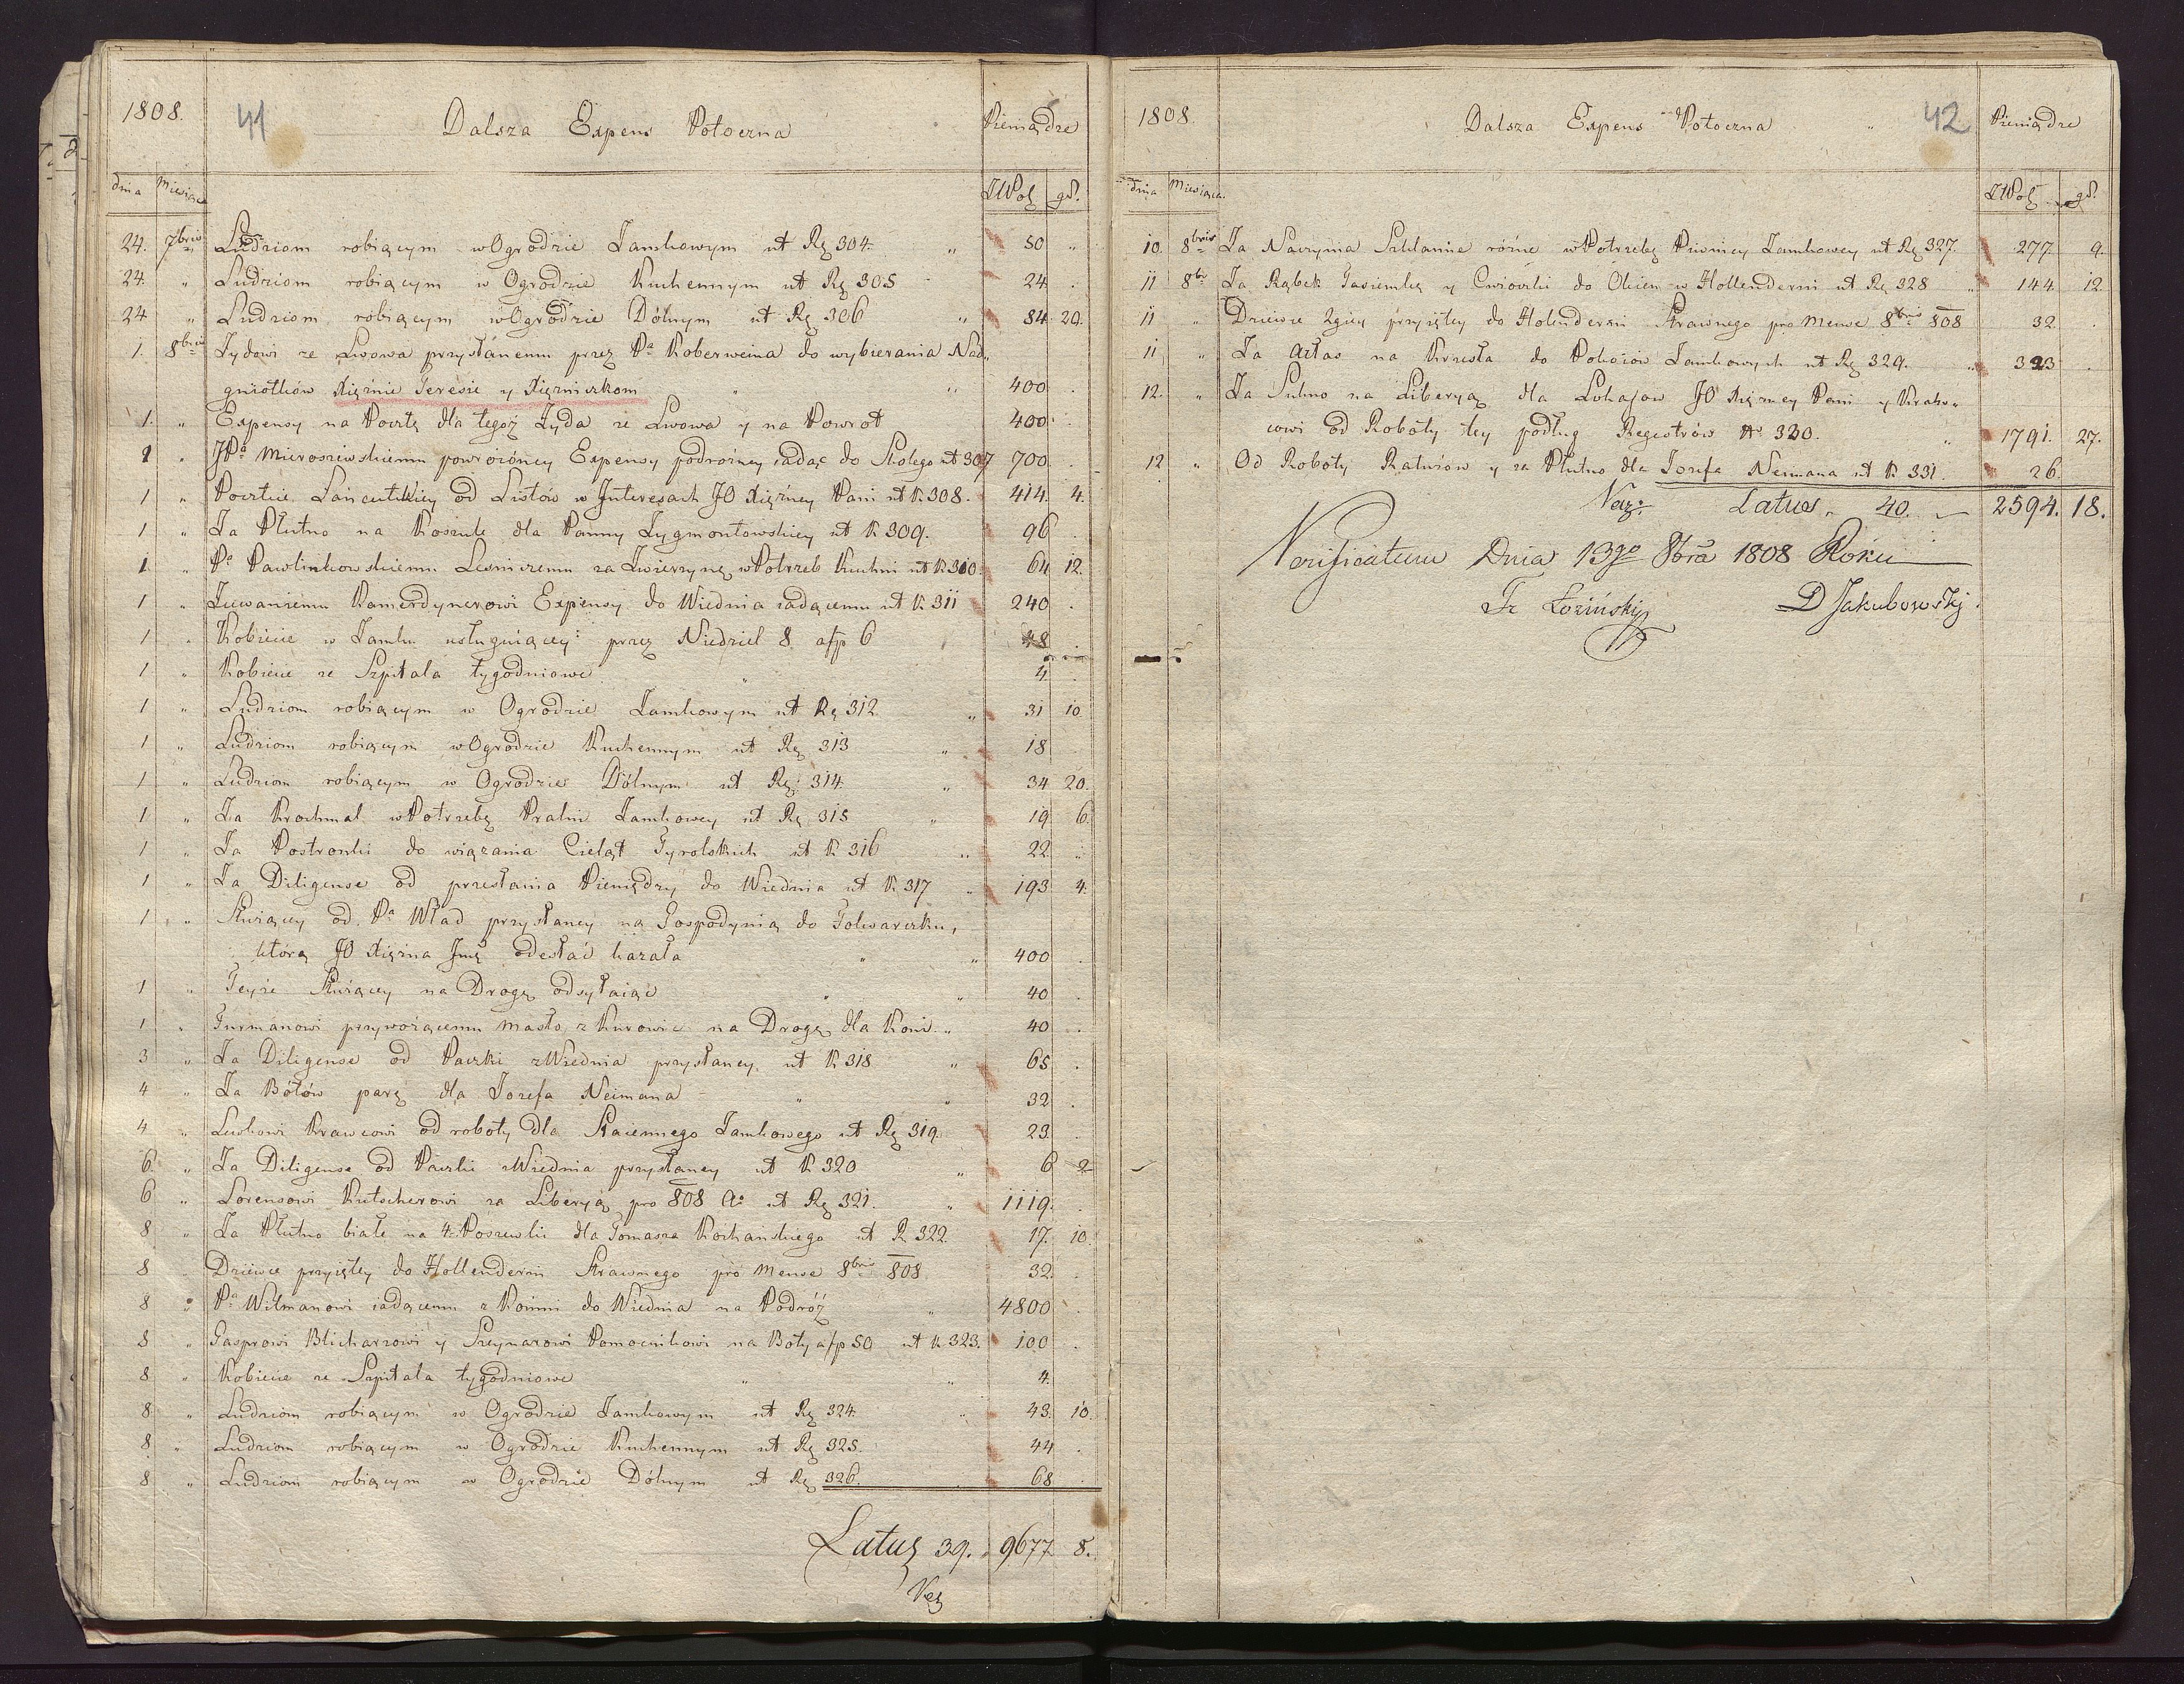 1808. 41 Dalsza Expens Potoczna Pieniądze
dnia Miesiąca ZłPol gr.
24. 7bris Ludziom robiącym w Ogrodzie Zamkowym ut Rg 304. 50 "
24. " Ludziom robiącym w Ogrodzie Kuchennym ut Rg 305 24 .
24 " Ludziom robiącym w Ogrodzie Dólnym ut Rg 306 84. 20.
1. 8bris Żydowi ze Lwowa przysłánemu przez Pa Koberweina do wybierania Nad„
gniotków Xiężnie Teresie y Xiężniczkom 400 .
1. " Expensy na Pocztę dla tegoż Żyda ze Lwowa y na Powrot 400 .
1 " JPa Mieroszewskiemu powrozóney Expensy podrożney iadąc do Skolego ut 307 700 .
1 " Poczcie Łańcutskiey od Listów w Interesach JO Xiężney Pani ut R 308. 414. 4.
1 " Za Płutno na Koszule dla Panny Zygmontowskiey ut R 309. 96 .
1 " Pa Pawlinkowskiemu Lesniczemu za Zwierzynę w Potrzeb Kuchni ut R 310 64 12.
1 " Kamerdynerowi Expensy do Wiednia iadącemu ut R 311 240 .
1 " Kobiecie w Zamku usługuiącey przez Niedziel 8 a fp 6 48
1 " Kobiecie ze Szpitala tygodniowe 4 .
1 " Ludziom robiącym w Ogrodzie Zamkowym ut Rg 312 31 10
1 " Ludziom robiącym w Ogrodzie Kuchennym ut Rg 313 18
1 " Ludziom robiącym w Ogrodzie Dólnym ut Rg 314 34 20.
1 " Za Krochmal w Potrzebę Pralni Zamkowey ut Rg 315 19 6.
1 " Za Postronki do wiązania Cieląt Tyrolskich ut R 316 22 "
1 " Za Diligense od przesłania Pieniędzy do Wiednia ut R 317 193 4.
1 " Służącey od Pa Wład przysłaney na Gospodynią do Folwarczku,
którą JO Xiężna Jmę odesłać kazała 400 .
1 " Teyże Służącey na Drogę odsyłaiąc 40 .
1 " Furmanowi przywożącemu masło z Kurowic na Drogę dla Koni 40 .
3 " Za Diligense od Paczki z Wiednia przysłaney ut R 318 65 .
4 " Za Bótów parę dla Jozefa Neimana 32 .
4 " Krawcowi od roboty dla Staiennego Zamkowego ut Rg 319 23.
6 " Za Diligense od Paczki z Wiednia przysłaney ut R 320 6 2
6 " Lorensowi Kutscherowi za Liberyą pro 808 Ao ut Rg 321. 1119.
8 " Za Płutno białe na 4 Poszewki dla Tomasza Kochanskiego ut R 322 17. 10.
8 Dziewce przyiętey do Hollenderni Strawnego pro Mense 8bris 808 32.
8 " Pa Wilmanowi iadącemu z Końmi do Wiednia na Podróż 4800 .
8 " Gasprowi Blicharzowi y Pomocnikowi na Boty a fp 50 ut R 323. 100 .
8 " Kobiecie ze Szpitala tygodniowe 4.
8 " Ludziom robiącym w Ogrodzie Zamkowym ut Rg 324 43. 10.
8 " Ludziom robiącym w Ogrodzie Kuchennym ut Rg 325. 44 .
8 " Ludziom robiącym w Ogrodzie Dólnym ut Rg 326. 68 .
Latus 39. 9677 8.
1808. Dalsza Expens Potoczna 42 Pieniądze
dnia Miesiąca. ZłPol gr.
10. 8bris Za Naczynia Szklanne rózne w Potrzebę Piwnicy Zamkowey ut Rg 327. 277. 9.
11 8br Za Rąbek Tasiemkę y Cwioczki do Okien w Hollenderni ut Rg 328 144. 12.
11 " Dziewce 2giey przyiętey do Holenderni Strawnego pro Mense 8bris 808 32. .
11 " Za Atłas na Krzesła do Pokoiów Zamkowych ut Rg 329. 323 .
12. " Za Sukno na Liberyą dla Lokajow JO Xiężney Pani y Kraw„
cowi od Roboty tey podług Regestrów No 330. 1791. 27.
12 " Od Roboty y za Płutno dla Jozefa Neimana ut R 331. 26.
Latus 40. 2594. 18.
Verificatum Dnia 13go 8bra 1808 Roku
Fr Łoziński
D Jakubowskj